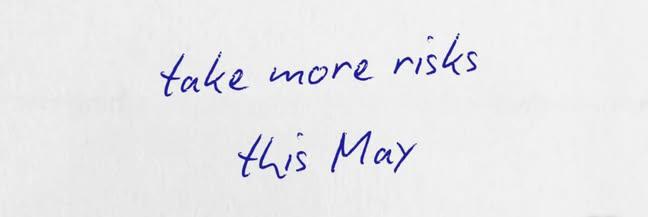 take more risks
this May